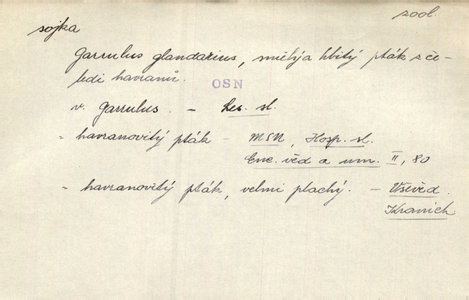 sojka
zool.
Garrulus glandarius, smělý a hbitý pták z če-
ledi havranů.
OSN
v. Garrulus. - Res. sl.
- havranovitý pták - MSN, Hosp. sl.
Enc. věd a um. II, 80
- havranovitý pták, velmi plachý. - Všivěd.
Kramich